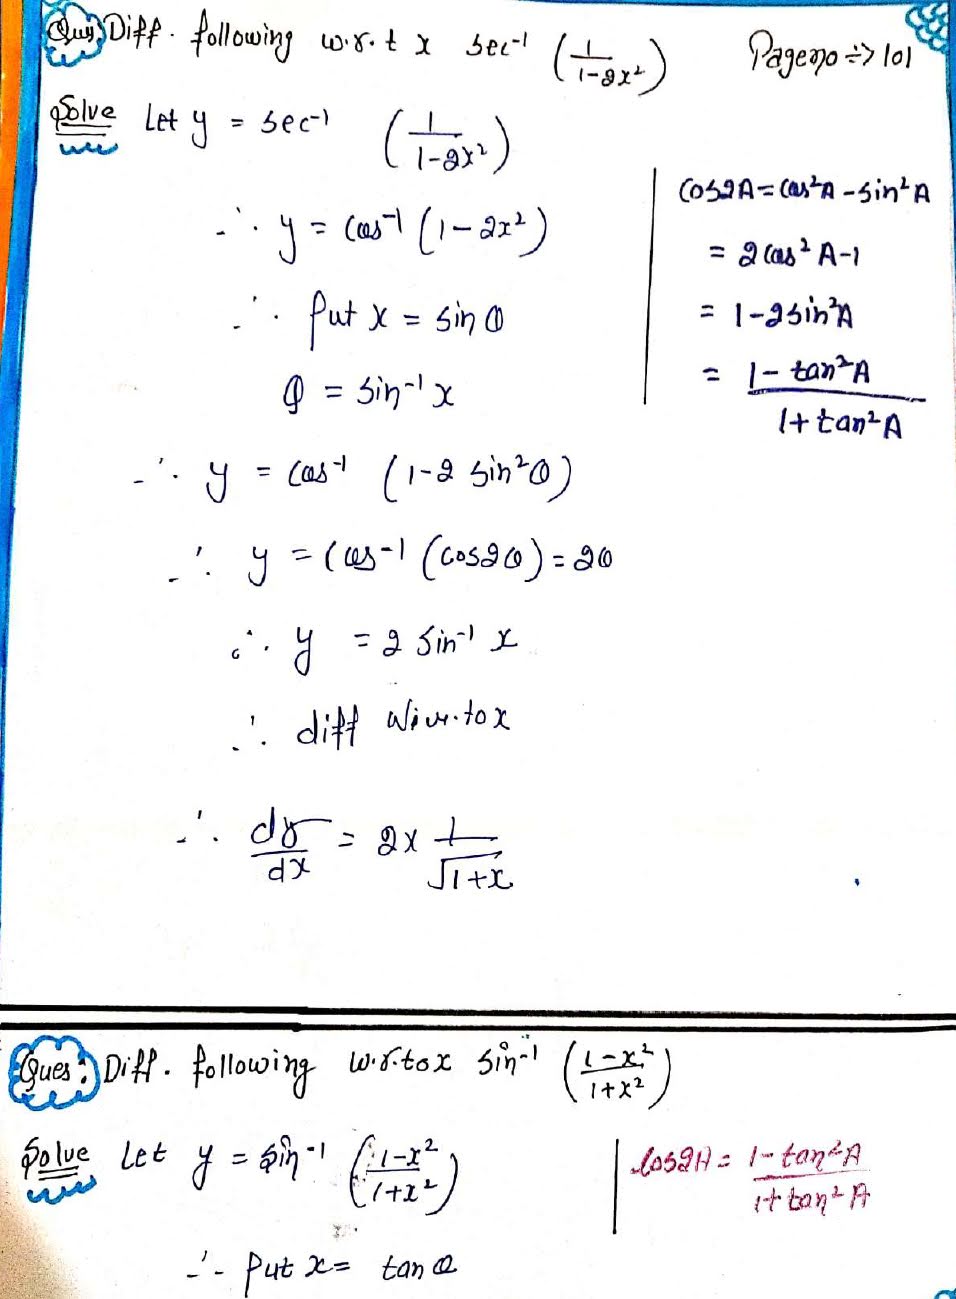 Ques: Diff. following w.r.t x sec⁻¹ (1/(1-2x²)) Page no ⇒ 101
Solve Let y = sec⁻¹ (1/(1-2x²))
∴ y = cos⁻¹ (1-2x²)
∴ Put x = sin θ
θ = sin⁻¹ x
∴ y = cos⁻¹ (1-2 sin²θ)
∴ y = cos⁻¹ (cos2θ) = 2θ
∴ y = 2 sin⁻¹ x
∴ diff w.r.to x
∴ dy/dx = 2 × 1/√(1+x)
cos2A = cos²A - sin²A
= 2cos² A-1
= 1-2sin²A
= (1- tan²A)/(1+ tan²A)
Ques: Diff. following w.r.to x sin⁻¹ ((1-x²)/(1+x²))
Solve Let y = sin⁻¹ ((1-x²)/(1+x²))
∴ Put x = tan θ
cos2A = (1- tan²A)/(1+ tan² A)